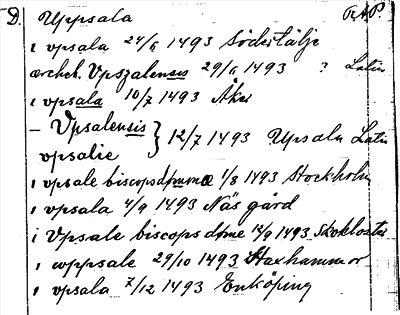 D. Uppsala RAP.
i vpsala 24/6 1493 Södertälje
ærcheb. Vpszalensis 29/6 1493 ? Latin
i vpsala 10/7 1493 Åker
– Vpsalensis } 12/7 1493 Upsala Latin
vpsalie
i vpsale biscopsdømme 1/8 1493 Stockholm
i vpsala 4/9 1493 Näs gård
i Vpsale biscops døme 14/9 1493 Skokloster
i wppsale 29/10 1493 Staxhammar
i vpsala 7/12 1493 Enköping